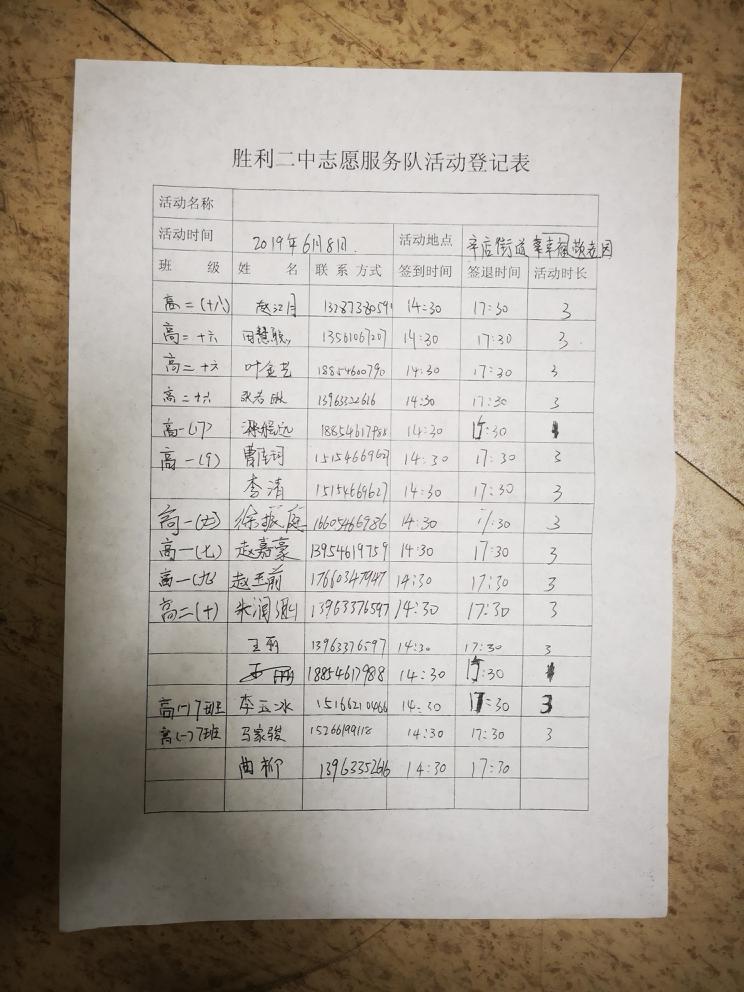 胜利二中志愿服务队活动登记表
活动名称
活动时间 2019年6月8日. 活动地点 辛店街道 幸福敬老园
班 级 姓 名 联系方式 签到时间 签退时间 活动时长
高二(十八) 赵江月 1328738059 14:30 17:30 3
高二 十六 田慧 13561067207 14:30 17:30 3
高二 十六 叶金艺 18854600790 14:30 17:30 3
高二 十六 13963322616 14:30 17:30 3
高一(7) 18854617988 14:30 :30
高一(9) 曹佳珂 1515466962 14:30 17:30 3
李清 15154669627 14:30 17:30 3
高一(七) 徐振庭 16605466986 14:30 17:30 3
高一(七) 赵嘉豪 13954619759 14:30 17:30 3
高一(九) 赵玉前 17660347947 14:30 17:30 3
高二(十) 张润 13963376597 14:30 17:30 3
王丽 13963376597 14:30 17:30 3
18854617988 14:30 :30
高(一)7班 李玉冰 15166210466 14:30 17:30 3
高(一)7班 马家骏 15266199118 14:30 17:30 3
曲柳 1396335266 14:30 17:30